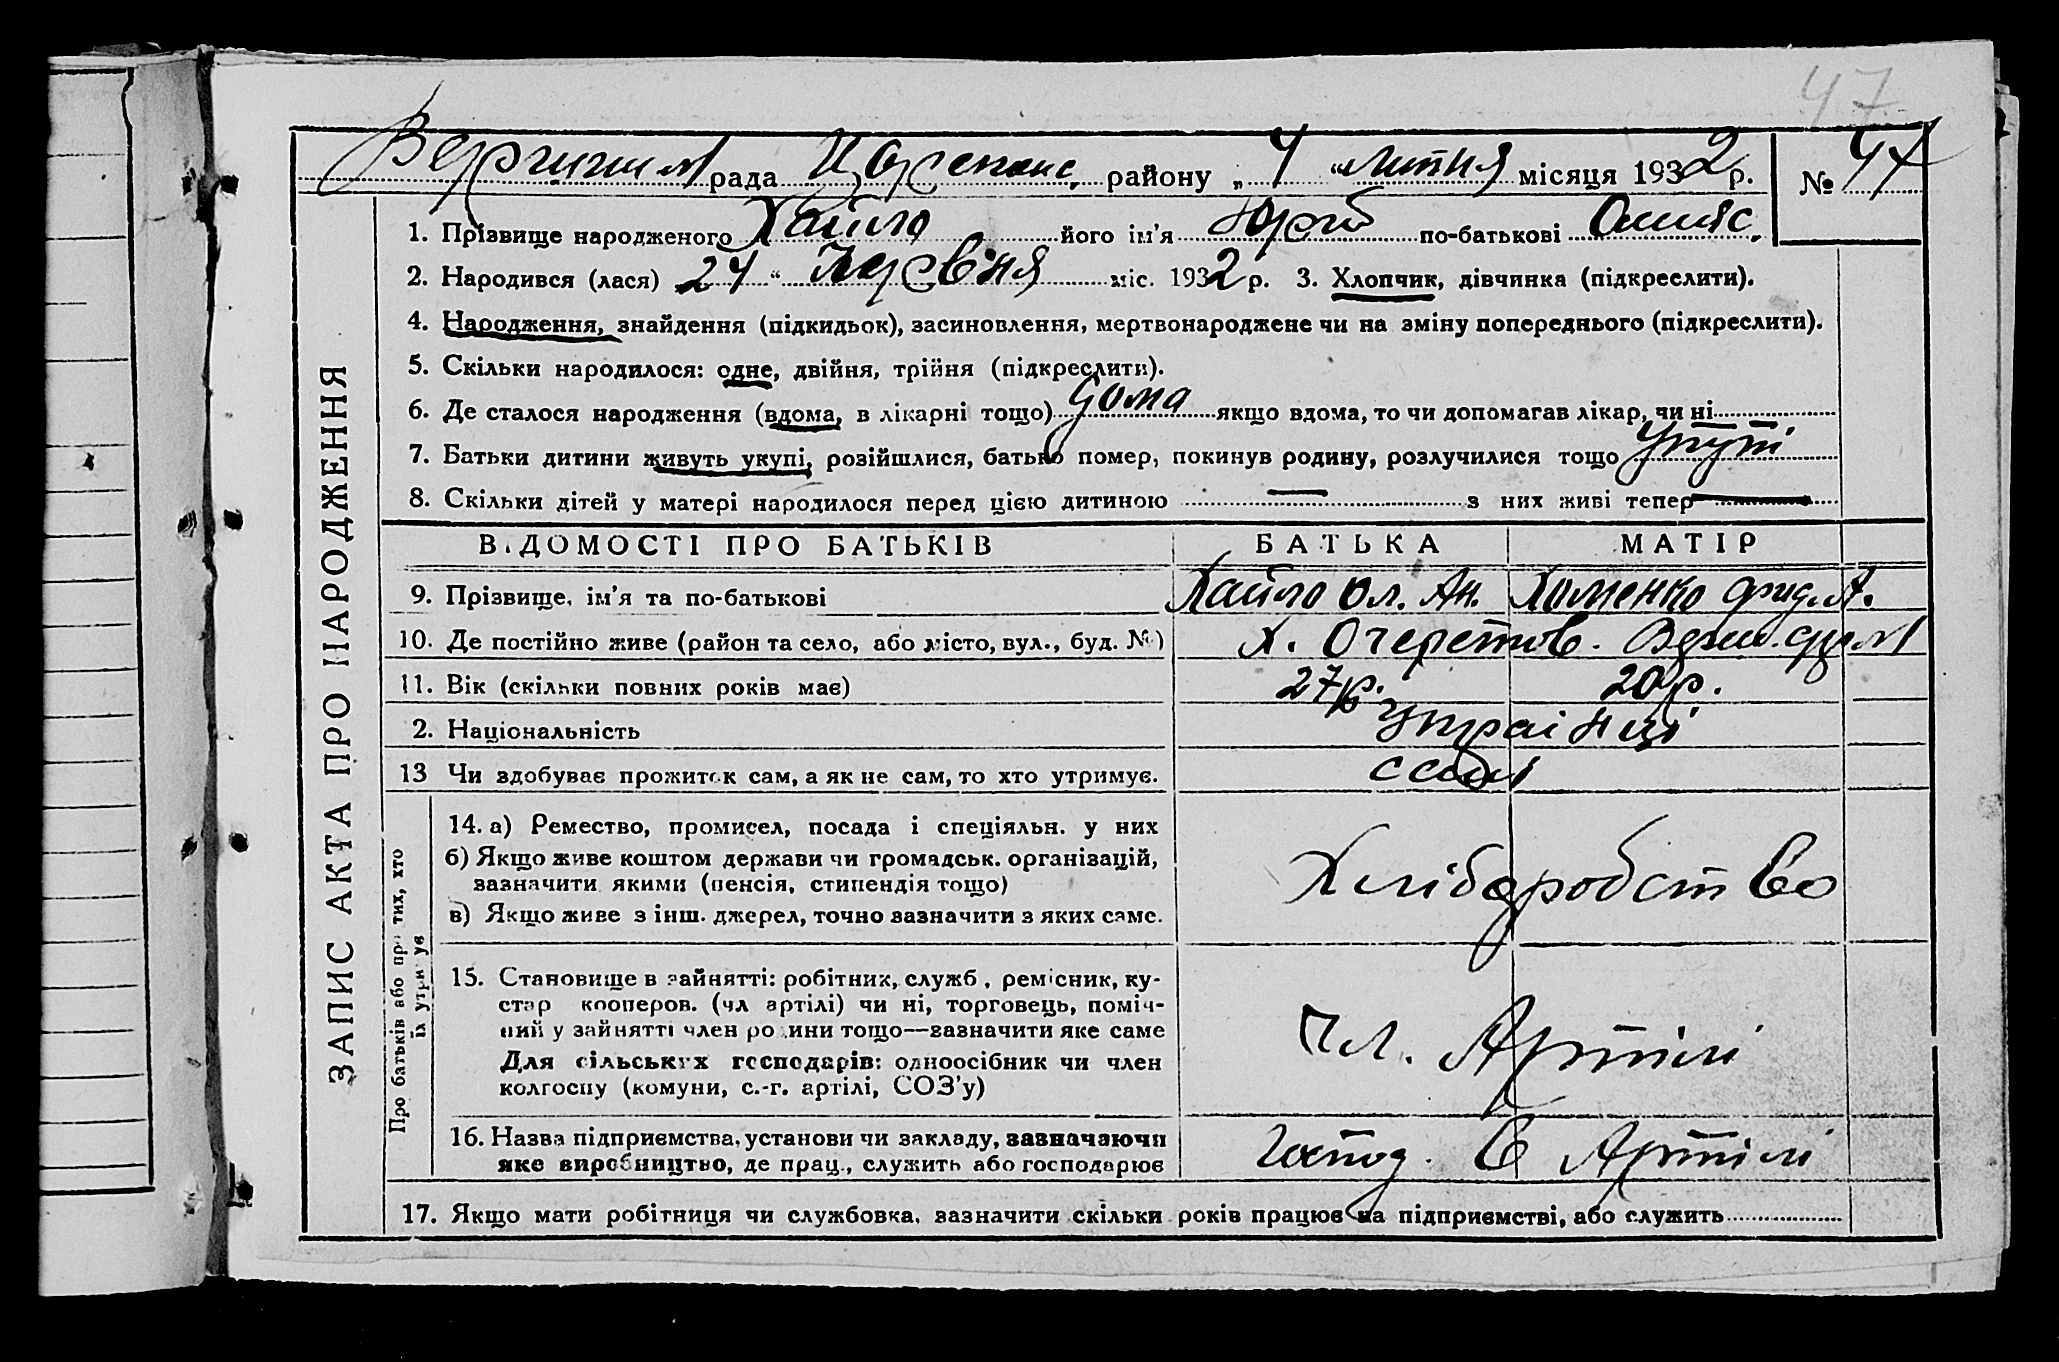 47
рада Царечанс. району „4“ липня місяця 1932 р. № 47
ЗАПИС АКТА ПРО НАРОДЖЕННЯ
1. Прізвище народженого Хайло його ім'я Юрій по-батькові
2. Народився (лася) „24“ Червня міс. 1932 р. 3. Хлопчик, дівчинка (підкреслити).
4. Народження, знайдення (підкидьок), засиновлення, мертвонароджене чи на зміну попереднього (підкреслити).
5. Скільки народилося: одне, двійня, трійня (підкреслити).
6. Де сталося народження (вдома, в лікарні тощо) дома якщо вдома, то чи допомагав лікар, чи ні
7. Батьки дитини живуть укупі, розійшлися, батько помер, покинув родину, розлучилися тощо укупі
8. Скільки дітей у матері народилося перед цією дитиною — з них живі тепер —
ВІДОМОСТІ ПРО БАТЬКІВ БАТЬКА МАТІР
9. Прізвище, ім'я та по-батькові Хайло Ол. Ан. Хоменко А.
10. Де постійно живе (район та село, або місто, вул., буд. №) х. Очеретов.
11. Вік (скільки повних років має) 27 р. 20 р.
2. Національність Українці
13 Чи здобуває прожиток сам, а як не сам, то хто утримує. сами
Про батьків або про тих, хто їх утримує
14. а) Ремество, промисел, посада і спеціяльн. у них
б) Якщо живе коштом держави чи громадськ. організацій,
зазначити якими (пенсія, стипендія тощо)
в) Якщо живе з інш. джерел, точно зазначити з яких саме.
Хліборобство
15. Становище в зайнятті: робітник, служб., ремісник, ку-
стар кооперов. (чл артілі) чи ні, торговець, поміч-
ний у зайнятті член родини тощо—зазначити яке саме
Для сільських господарів: одноосібник чи член
колгоспу (комуни, с.-г. артілі, СОЗ'у)
Чл. Артілі
16. Назва підприємства, установи чи закладу, зазначаючи
яке виробництво, де прац., служить або господарює
Господ. в Артілі
17. Якщо мати робітниця чи службовка, зазначити скільки років працює на підприємстві, або служить